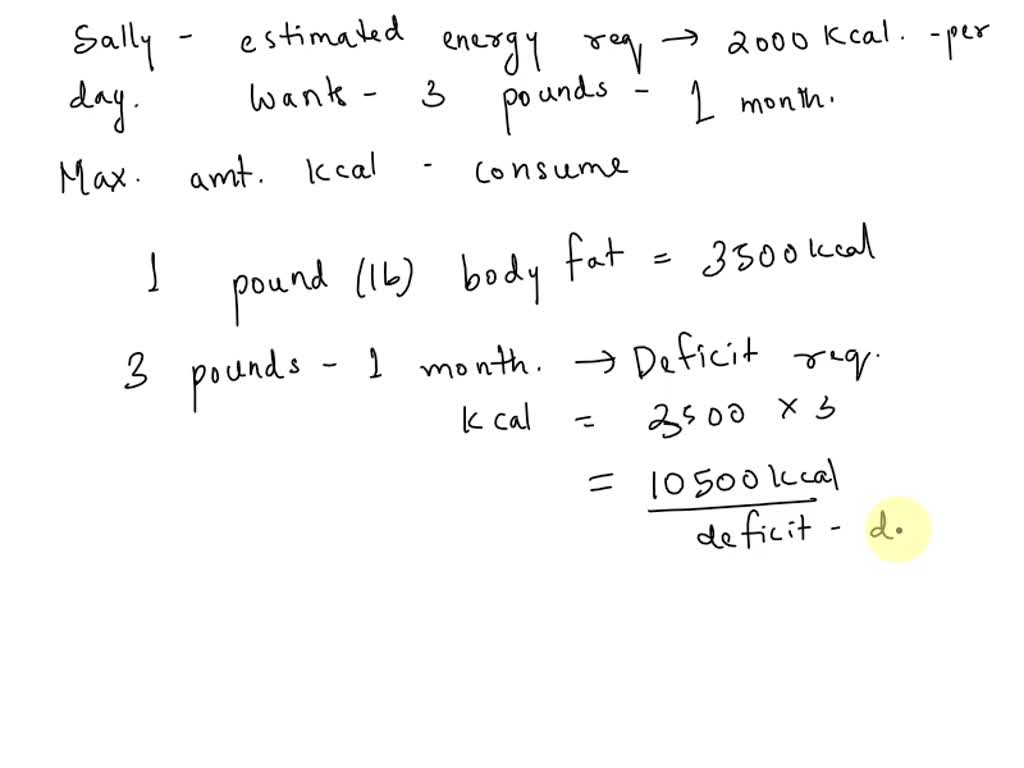 Sally - estimated energy req → 2000 Kcal. - per
day. Wants - 3 pounds - 1 month.
Max. amt. kcal - consume
1 pound (lb) body fat = 3500 kcal
3 pounds - 1 month. → Deficit req.
kcal = 3500 × 3
= 10500 kcal
deficit - d.